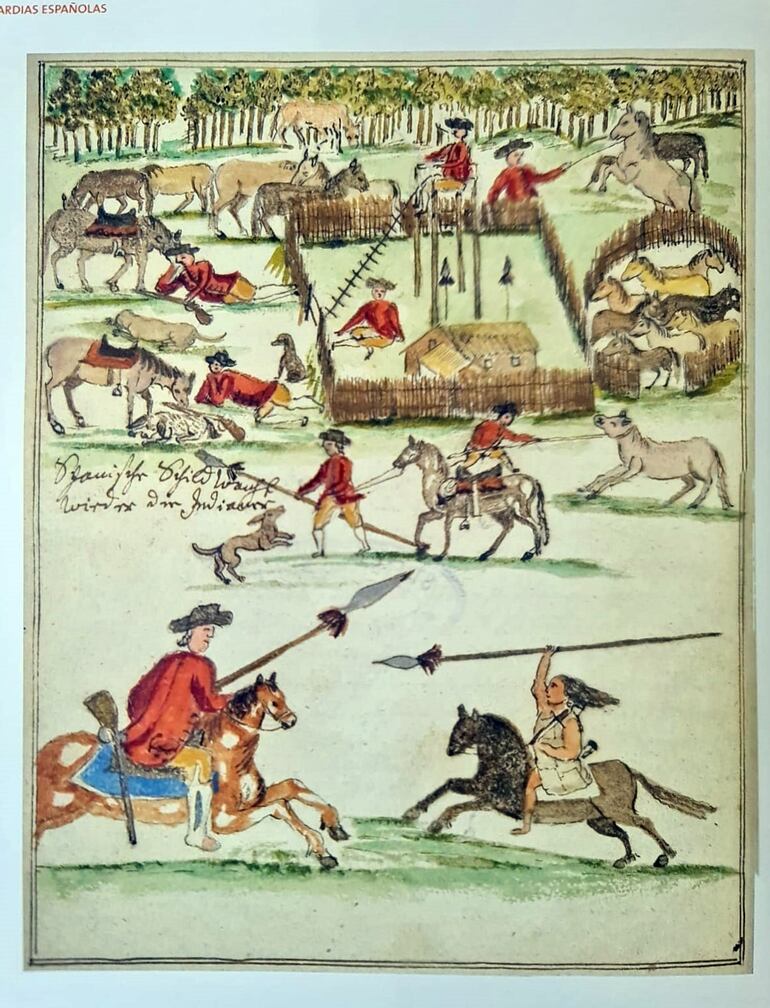 ARDIAS ESPAÑOLAS
Spanische Schildwacht
wieder die Indianer